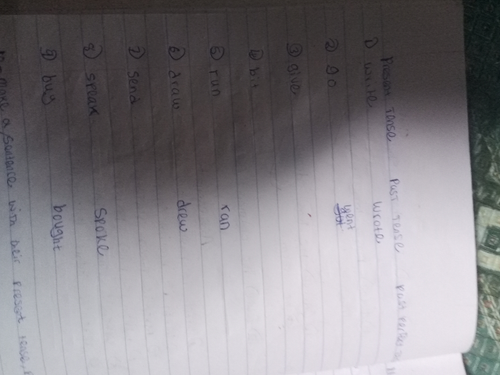 Present Tense Past Tense Past
1) write wrote
2) go went
3) give
4) bit
5) run ran
6) draw drew
7) send
8) speak spoke
9) bug bought
make a sentence with their present tense,